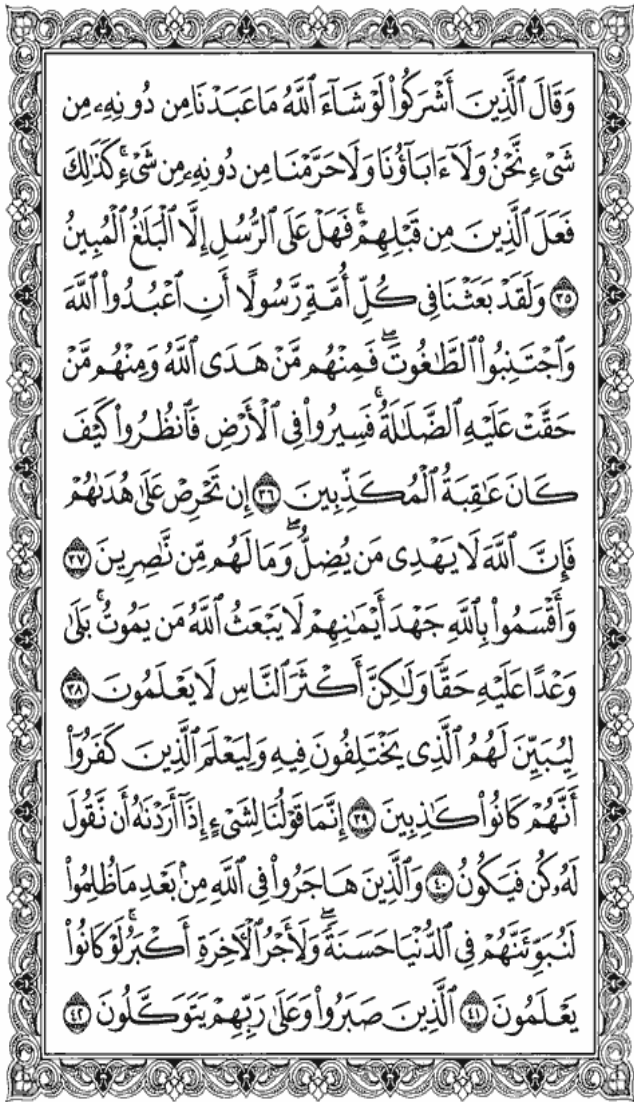 وَقَالَ ٱلَّذِينَ أَشْرَكُوا۟ لَوْ شَآءَ ٱللَّهُ مَا عَبَدْنَا مِن دُونِهِۦ مِن
شَىْءٍ نَّحْنُ وَلَآ ءَابَآؤُنَا وَلَا حَرَّمْنَا مِن دُونِهِۦ مِن شَىْءٍۚ كَذَٰلِكَ
فَعَلَ ٱلَّذِينَ مِن قَبْلِهِمْۚ فَهَلْ عَلَى ٱلرُّسُلِ إِلَّا ٱلْبَلَٰغُ ٱلْمُبِينُ
٣٥ وَلَقَدْ بَعَثْنَا فِى كُلِّ أُمَّةٍ رَّسُولًا أَنِ ٱعْبُدُوا۟ ٱللَّهَ
وَٱجْتَنِبُوا۟ ٱلطَّٰغُوتَۖ فَمِنْهُم مَّنْ هَدَى ٱللَّهُ وَمِنْهُم مَّنْ
حَقَّتْ عَلَيْهِ ٱلضَّلَٰلَةُۚ فَسِيرُوا۟ فِى ٱلْأَرْضِ فَٱنظُرُوا۟ كَيْفَ
كَانَ عَٰقِبَةُ ٱلْمُكَذِّبِينَ ٣٦ إِن تَحْرِصْ عَلَىٰ هُدَىٰهُمْ
فَإِنَّ ٱللَّهَ لَا يَهْدِى مَن يُضِلُّۖ وَمَا لَهُم مِّن نَّٰصِرِينَ ٣٧
وَأَقْسَمُوا۟ بِٱللَّهِ جَهْدَ أَيْمَٰنِهِمْ لَا يَبْعَثُ ٱللَّهُ مَن يَمُوتُۚ بَلَىٰ
وَعْدًا عَلَيْهِ حَقًّا وَلَٰكِنَّ أَكْثَرَ ٱلنَّاسِ لَا يَعْلَمُونَ ٣٨
لِيُبَيِّنَ لَهُمُ ٱلَّذِى يَخْتَلِفُونَ فِيهِ وَلِيَعْلَمَ ٱلَّذِينَ كَفَرُوٓا۟
أَنَّهُمْ كَانُوا۟ كَٰذِبِينَ ٣٩ إِنَّمَا قَوْلُنَا لِشَىْءٍ إِذَآ أَرَدْنَٰهُ أَن نَّقُولَ
لَهُۥ كُن فَيَكُونُ ٤٠ وَٱلَّذِينَ هَاجَرُوا۟ فِى ٱللَّهِ مِنۢ بَعْدِ مَا ظُلِمُوا۟
لَنُبَوِّئَنَّهُمْ فِى ٱلدُّنْيَا حَسَنَةًۖ وَلَأَجْرُ ٱلْءَاخِرَةِ أَكْبَرُۚ لَوْ كَانُوا۟
يَعْلَمُونَ ٤١ ٱلَّذِينَ صَبَرُوا۟ وَعَلَىٰ رَبِّهِمْ يَتَوَكَّلُونَ ٤٢